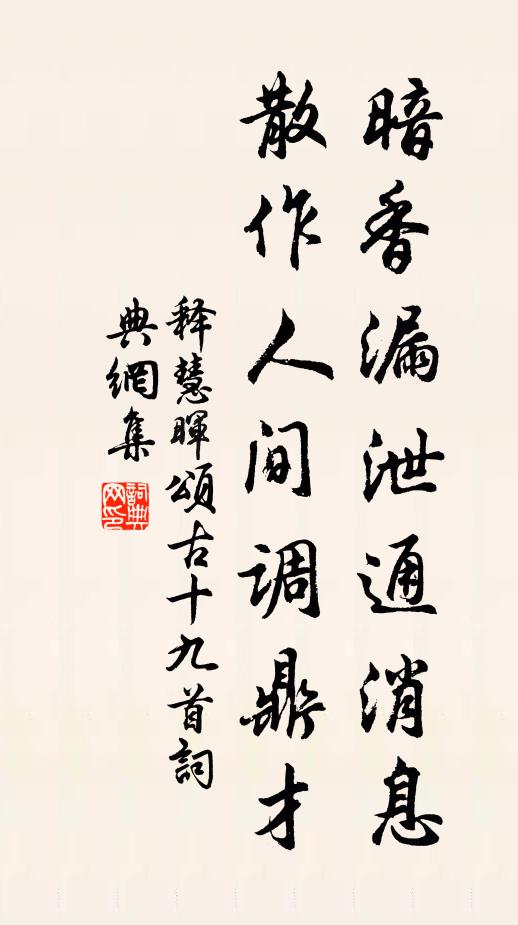 暗香漏泄通消息
散作人间调鼎才
释慧暉頌古十九首詞
典網集
詞典網印